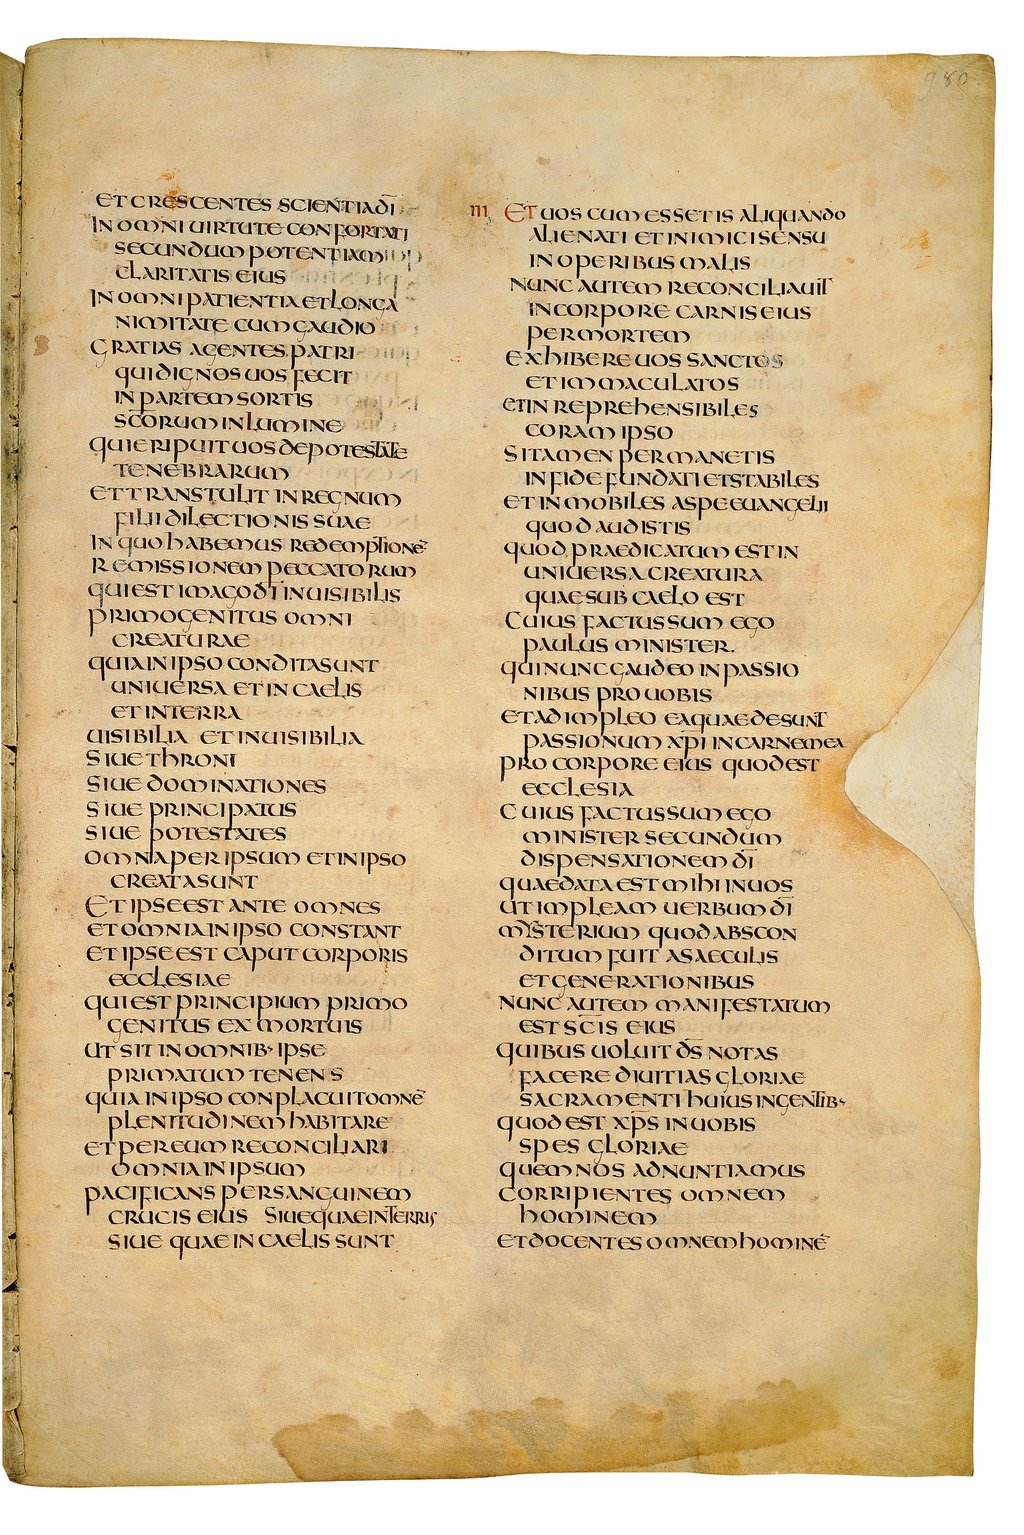 980.
ET CRESCENTES SCIENTIA DI̅
IN OMNI UIRTUTE CONFORTATI
SECUNDUM POTENTIAM
CLARITATIS EIUS
IN OMNI PATIENTIA ET LONGA
NIMITATE CUM GAUDIO
GRATIAS AGENTES PATRI
QUI DIGNOS UOS FECIT
IN PARTEM SORTIS
SC̅ORUM IN LUMINE
QUI ERIPUIT UOS DE POTESTATE
TENEBRARUM
ET TRANSTULIT IN REGNUM
FILII DILECTIONIS SUAE
IN QUO HABEMUS REDEMPTIONE̅
REMISSIONEM PECCATORUM
QUI EST IMAGO DI̅ INUISIBILIS
PRIMOGENITUS OMNI
CREATURAE
QUIA IN IPSO CONDITA SUNT
UNIUERSA ET IN CAELIS
ET IN TERRA
UISIBILIA ET INUISIBILIA
SIUE THRONI
SIUE DOMINATIONES
SIUE PRINCIPATUS
SIUE POTESTATES
OMNA PER IPSUM ET IN IPSO
CREATA SUNT
ET IPSE EST ANTE OMNES
ET OMNIA IN IPSO CONSTANT
ET IPSE EST CAPUT CORPORIS
ECCLESIAE
QUI EST PRINCIPIUM PRIMO
GENITUS EX MORTUIS
UT SIT IN OMNIB· IPSE
PRIMATUM TENENS
QUIA IN IPSO CONPLACUIT OMNE̅
PLENITUDINEM HABITARE
ET PER EUM RECONCILIARI
OMNIA IN IPSUM
PACIFICANS PER SANGUINEM
CRUCIS EIUS SIUE QUAE IN TERRIS
SIUE QUAE IN CAELIS SUNT
III ET UOS CUM ESSETIS ALIQUANDO
ALIENATI ET INIMICI SENSU
IN OPERIBUS MALIS
NUNC AUTEM RECONCILIAUIT
IN CORPORE CARNIS EIUS
PER MORTEM
EXHIBERE UOS SANCTOS
ET IMMACULATOS
ET INREPREHENSIBILES
CORAM IPSO
SI TAMEN PERMANETIS
IN FIDE FUNDATI ET STABILES
ET INMOBILES A SPE EUANGELII
QUOD AUDISTIS
QUOD PRAEDICATUM EST IN
UNIUERSA CREATURA
QUAE SUB CAELO EST
CUIUS FACTUS SUM EGO
PAULUS MINISTER.
QUI NUNC GAUDEO IN PASSIO
NIBUS PRO UOBIS
ET ADIMPLEO EA QUAE DESUNT
PASSIONUM XPI̅ IN CARNE MEA
PRO CORPORE EIUS QUOD EST
ECCLESIA
CUIUS FACTUS SUM EGO
MINISTER SECUNDUM
DISPENSATIONEM DI̅
QUAE DATA EST MIHI IN UOS
UT IMPLEAM UERBUM DI̅
MYSTERIUM QUOD ABSCON
DITUM FUIT A SAECULIS
ET GENERATIONIBUS
NUNC AUTEM MANIFESTATUM
EST SC̅IS EIUS
QUIBUS UOLUIT DS̅ NOTAS
FACERE DIUITIAS GLORIAE
SACRAMENTI HUIUS IN GENTIB·
QUOD EST XPS̅ IN UOBIS
SPES GLORIAE
QUEM NOS ADNUNTIAMUS
CORRIPIENTES OMNEM
HOMINEM
ET DOCENTES OMNEM HOMINE̅